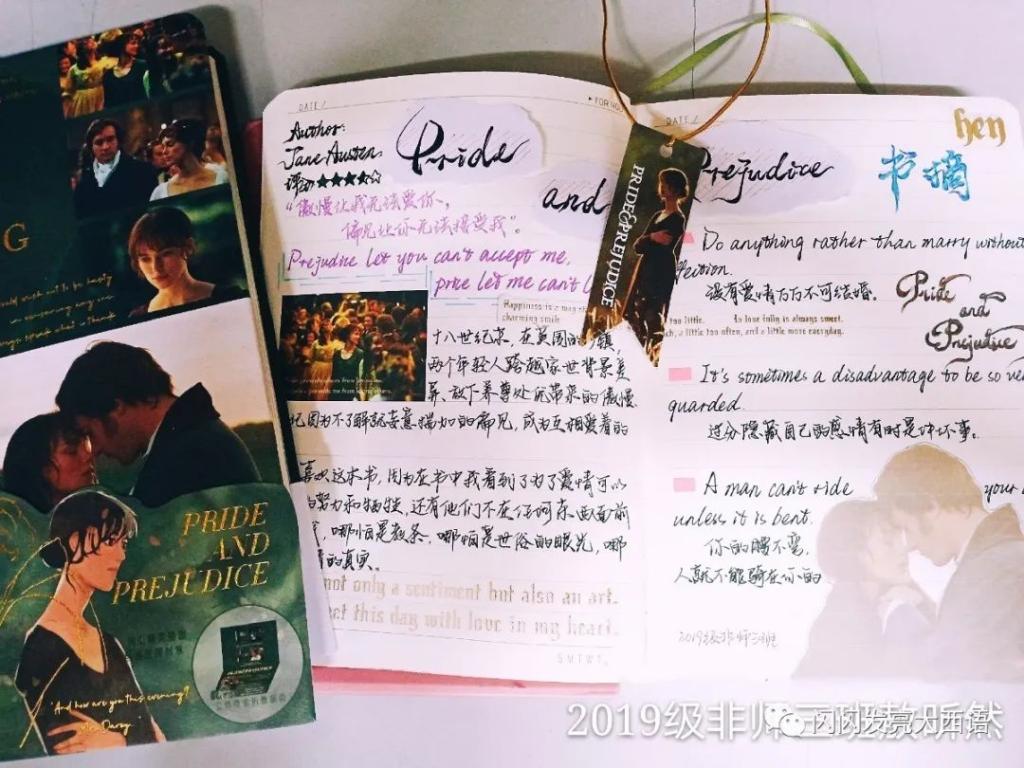 G
PRIDE
AND
PREJUDICE
"And how are you this evening?
Mrs. Darcy
DATE /
Author:
Jane Austen
Pride
and
评分★★★★☆
“傲慢让我无法爱你,
偏见让你无法接受我”
Prejudice let you can't accept me,
price let me can't l
Happiness is a
charming smile
十八世纪末,在英国的 镇,
两个年轻人跨越家世背景差
异、放下养尊处优带来的傲慢
因为不了解就妄意揣加的偏见,成为互相爱着的
喜欢这本书,因为在书中我看到了为了爱情可以
努力和牺牲,还有他们不在任何东西面前
,哪怕是教条,哪怕是世俗的眼光,哪
的真实。
not only a sentiment but also an art.
et this day with love in my heart.
S M T W T
PRIDE&PREJUDICE
DATE /
Prejudice
hen
书摘
Do anything rather than marry without
ffection.
没有爱情万万不可结婚。
Pride
and
Prejudice
too little. To love fully is always sweet.
a little too often, and a little more everyday.
It's sometimes a disadvantage to be so ve
guarded.
过分隐藏自己的感情有时是件坏事。
A man can't ride your
unless it is bent.
你的腰不弯,
人就不能骑在你的
2019级非师三班
2019级非师三班敖昕然
闪闪发亮大西语